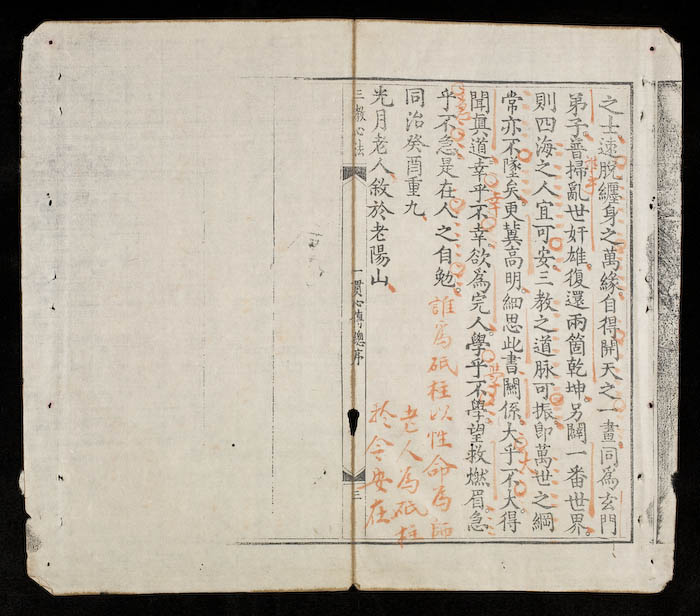 之士速脫纏身之萬緣自得開天之一畫同爲玄門
弟子普掃亂世奸雄復還兩箇乾坤另闢一番世界
則四海之人宜可安三教之道脉可振卽萬世之綱
常亦不墜矣更冀高明細思此書關係大乎不大得
聞眞道幸乎不幸欲爲完人學乎不學望救燃眉急
乎不急是在人之自勉
誰爲砥柱以性命爲師
同治癸酉重九
老人爲砥柱
光月老人敘於老陽山
於今安在
三報心法
一貫心傳總序
三